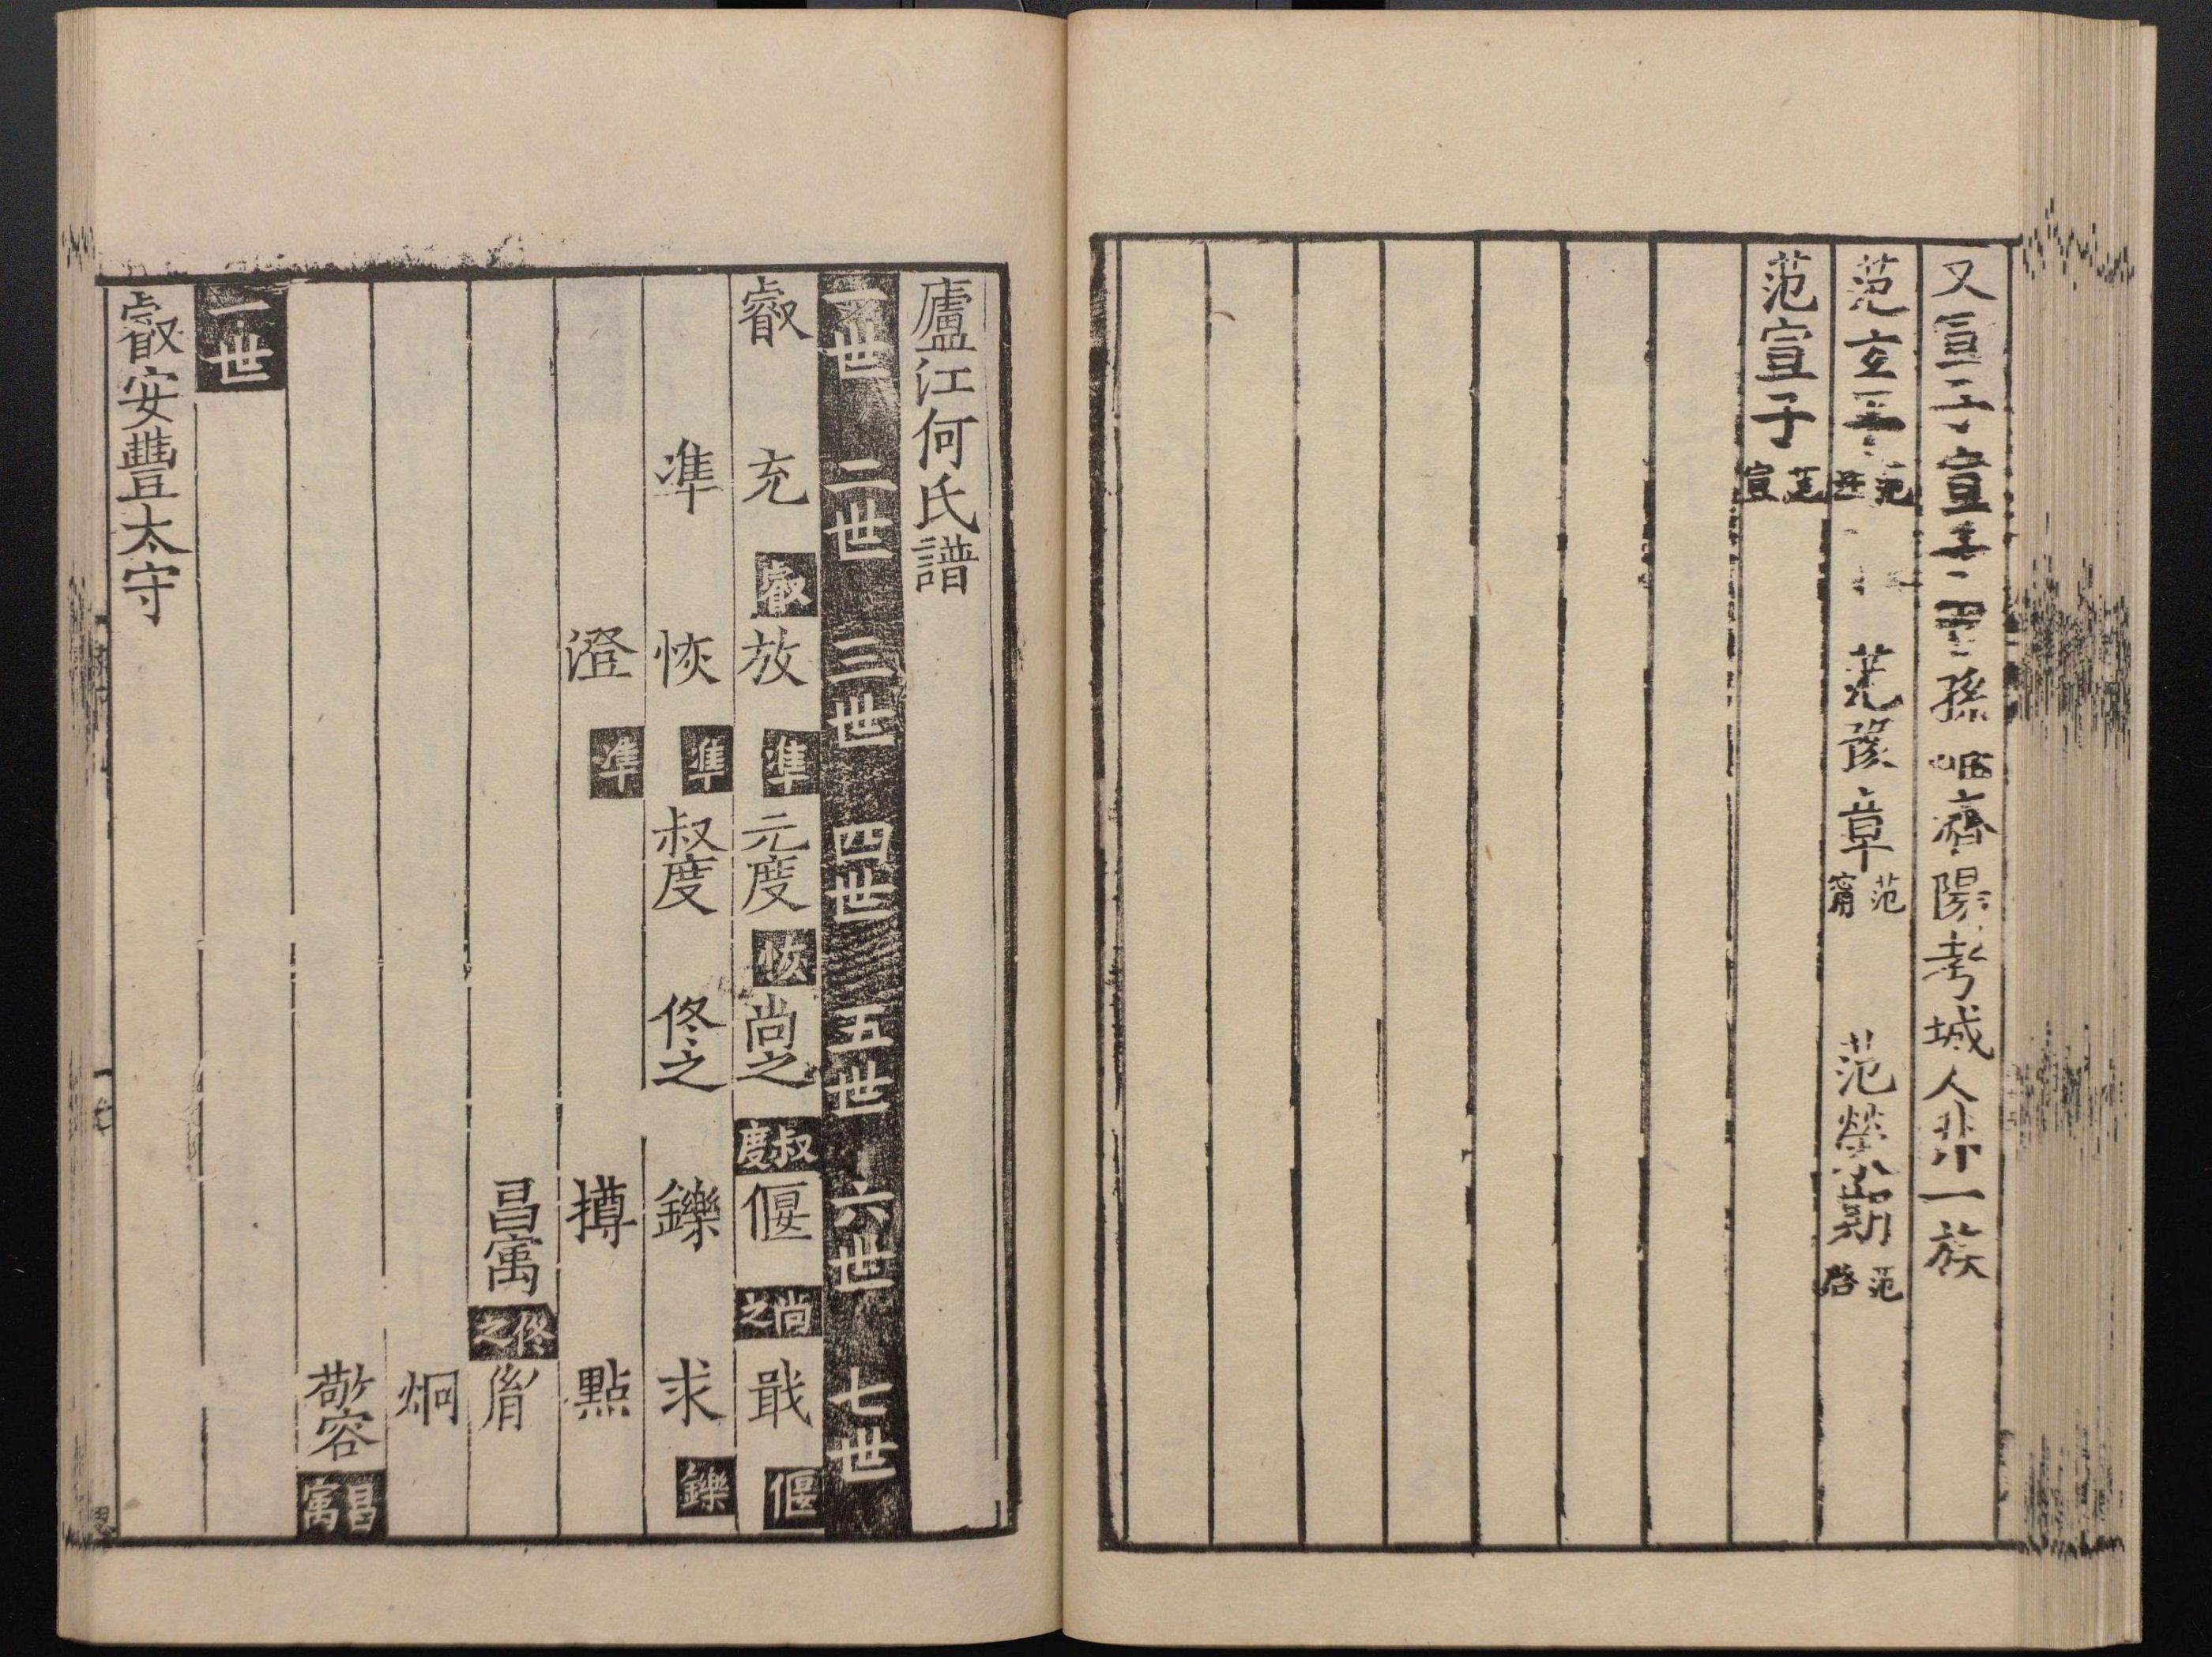 又宣子宣子孫 齊陽考城人非一族
范玄平范汪 范豫章范甯 范榮期范啓
范宣子范宣
廬江何氏譜
一世 二世 三世 四世 五世 六世 七世
叡 充叡 放準 元度恢 尚之叔度 偃尚之 戢偃
準 恢準 叔度 佟之 鑠 求鑠
澄準 撙 點
昌㝢佟之 胤
炯
敬容昌㝢
一世
叡安豐太守